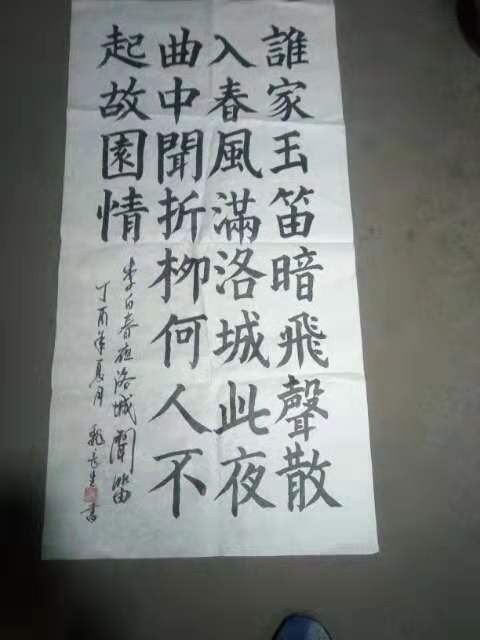 誰家玉笛暗飛聲散
入春風滿洛城此夜
曲中聞折柳何人不
起故園情
李白春夜洛城聞笛
丁酉年夏月 魏長生書